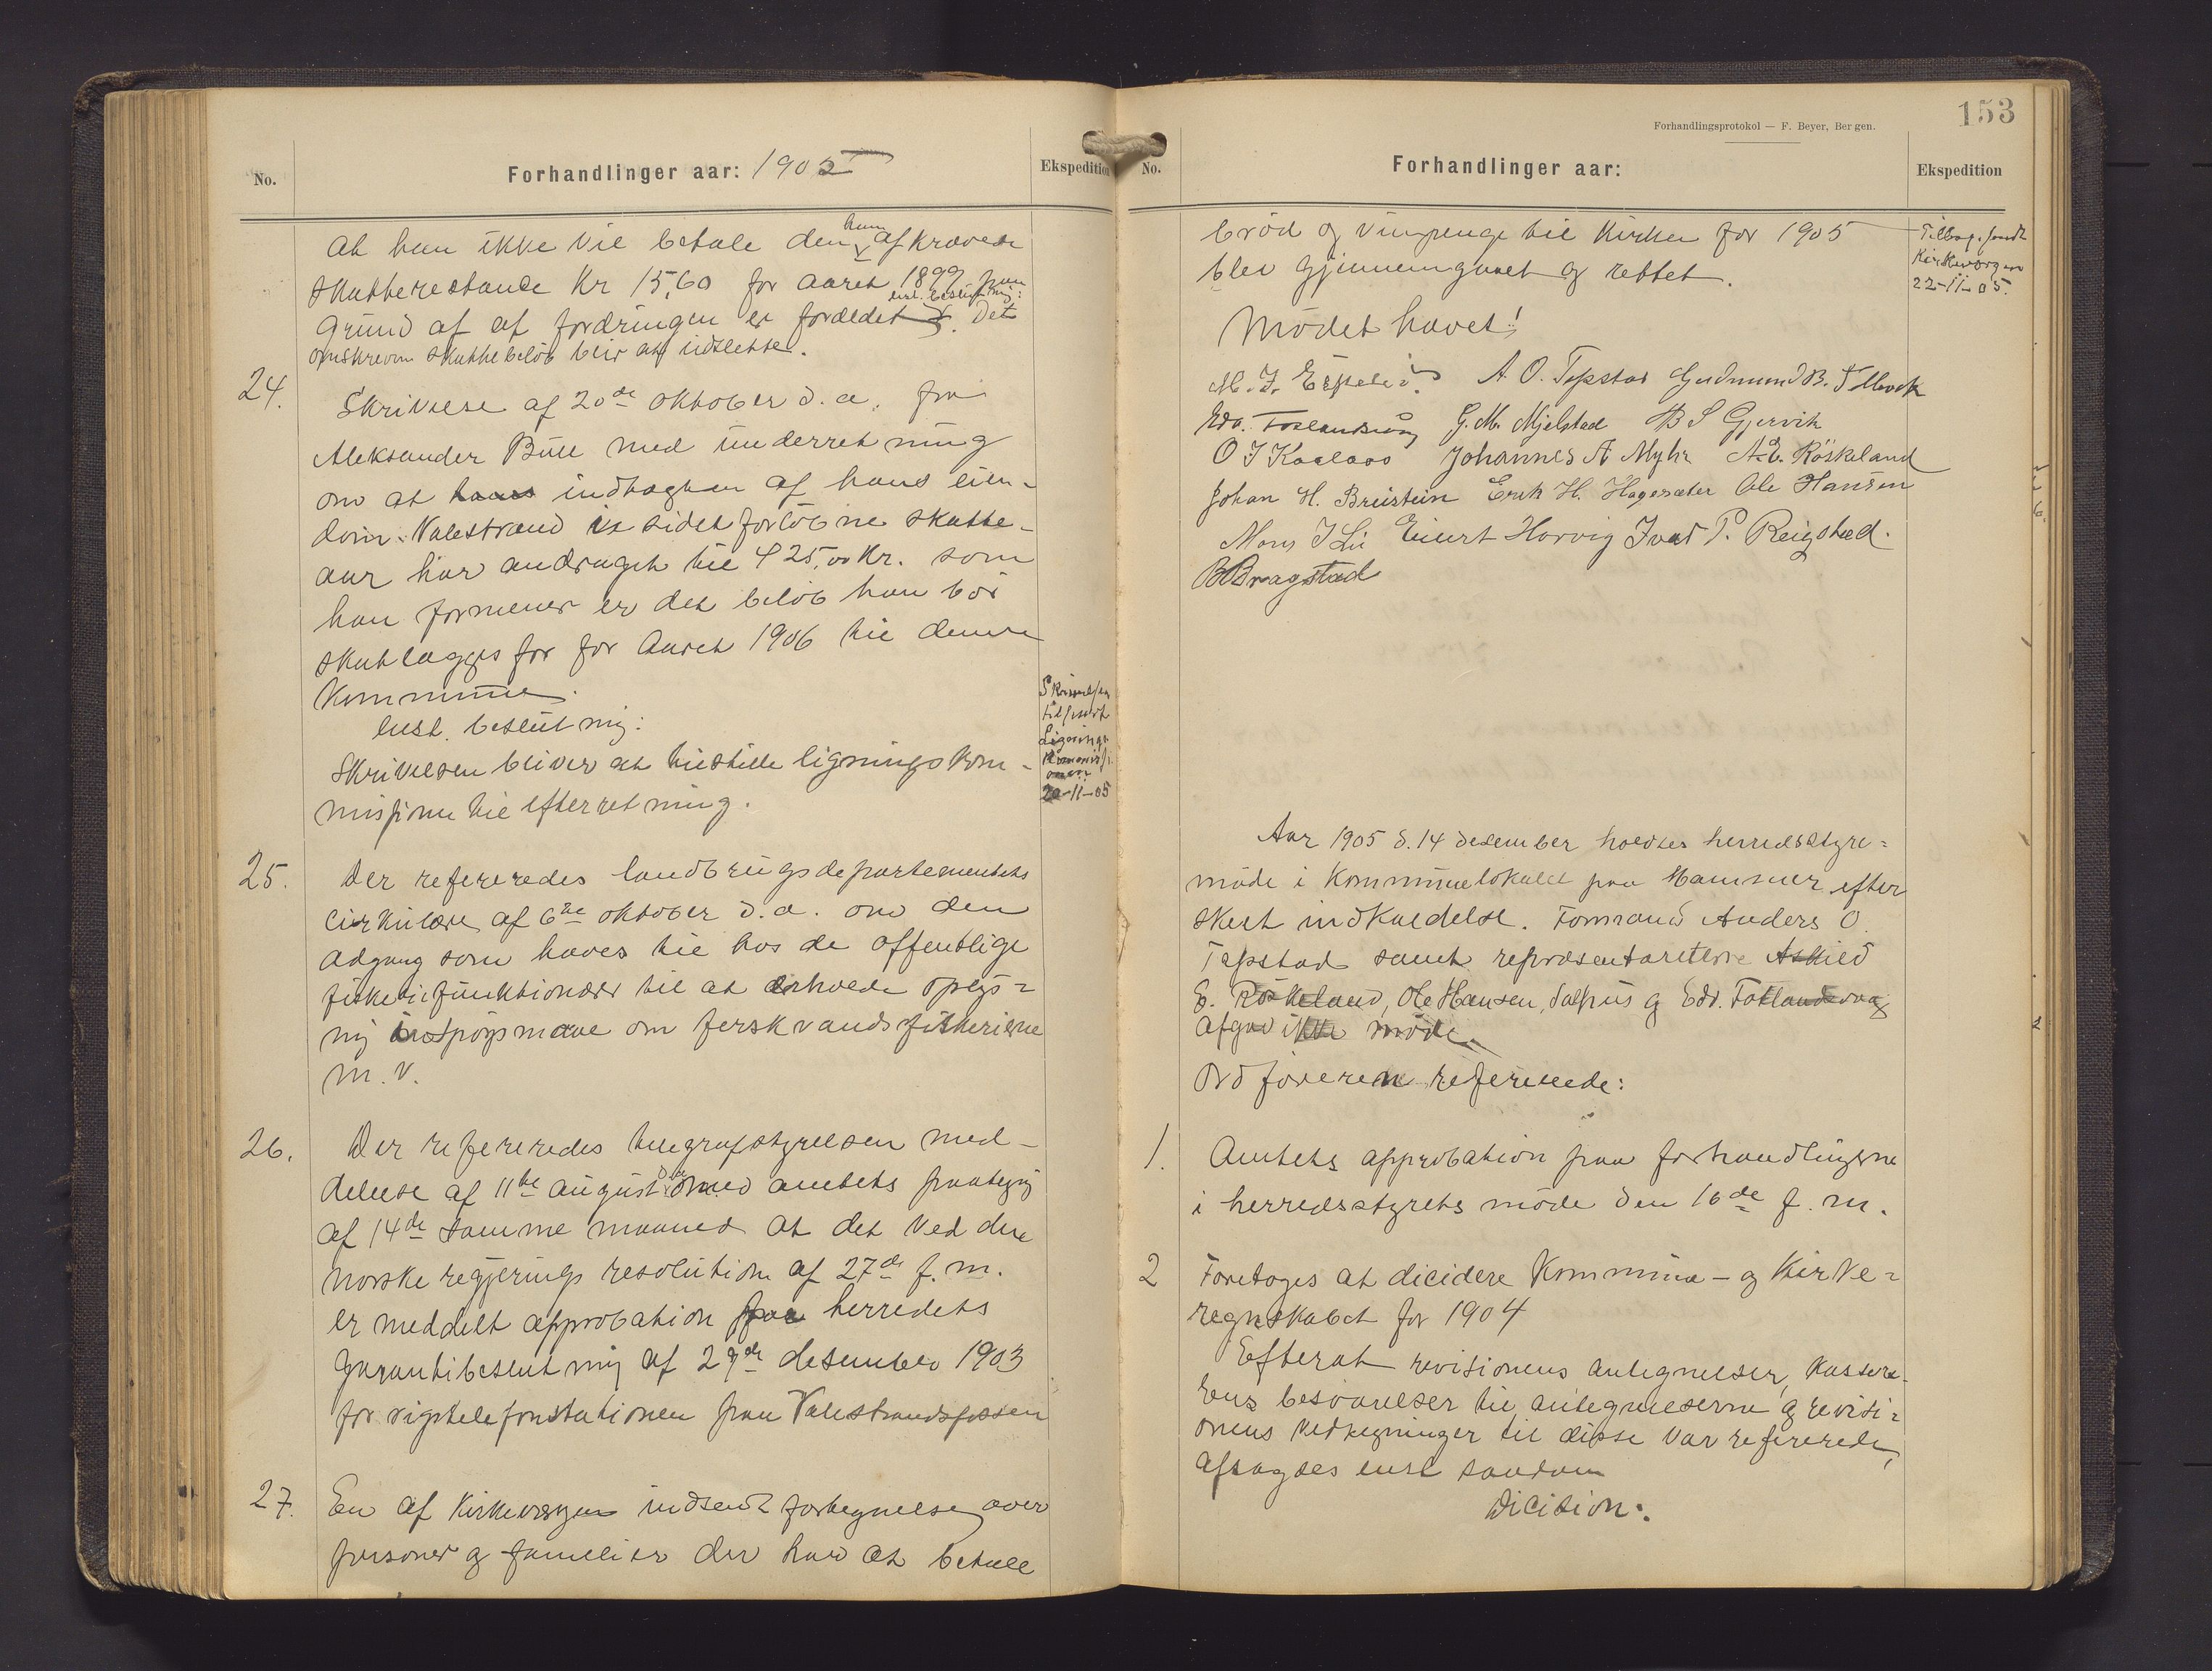 No.
Forhandlinger aar: 1905
Ekspedition
at han ikke vil betale den ham afkrævede
skatterestance Kr 15,60 for aaret 1899 paa
grund af at fordringen er forældet. enst. beslutning: Det
omskrevne skattebeløb blir at udslette.
24.
Skrivelse af 20de oktober d.a. fra
Aleksander Bull med underretning
om at hans indtægten af hans eien-
dom Valestrand i sidst forløbne skatte-
aar har andraget til 425,00 Kr. som
han formener er det beløb han bør
skatlægges for for Aaret 1906 til denne
Kommune.
Enst. beslutning:
Skrivelsen bliver at tilstille lignings kom-
missionen til efterretning.
Skrivelsen
tilsendt
Lignings
Kommissi-
onen
20-11-05
25.
Der refereredes landbrugsdepartementets
cirkulære af 6te oktober d.a. om den
adgang som haves til hos de offentlige
fiskerifunktionærer til at erholde oplys-
ning i spørgsmaal om ferskvandsfiskerierne
m.v.
26.
Der refereredes telegrafstyrelsen med-
delelse af 11te august d.a. med amtets paategning
af 14de samme maaned at det ved den
norske regjerings resolution af 27de f.m.
er meddelt approbation paa herredets
garantibeslutning af 29de desember 1903
for rigstelefonstationen paa Valestrandsfossen
27.
En af Kirkeværgen indsendt fortegnelse over
personer og familier der har at betale
153
Forhandlingsprotokol — F. Beyer, Bergen.
No.
Forhandlinger aar:
Ekspedition
brød og vinpenge til Kirken for 1905
blev gjennemgaaet og rettet.
Tilbagesendt
Kirkeværgen
22-11-05.
Mødet hævet!
A. O. Tepstad Gudmund B.
Edv. Totlandsvaag G. M. Mjelstad B S Gjervik
O J Kaalaas Johannes A Myhr A. E. Röskeland
Johan H. Breistein Erik H. Hagesæter Ole Hansen
Mons J Li Eivert Horvig Ivar P. Reigstad.
B Bragstad
Aar 1905 d. 14 desember holdtes herredsstyre-
møde i Kommunelokalet paa Hammer efter
skeet indkaldelse. Formand Anders O.
Tepstad samt repræsentanterne Askild
E. Röskeland, Ole Hansen, Salhus og Edv. Totlandsvaag
afgav ikke møde.
Ordføreren refererede:
1.
Amtets approbation paa forhandlingerne
i herredsstyrets møde den 16de f.m.
2
Foretoges at dicidere Kommune- og Kirke-
regnskabet for 1904
Efterat revisionens antegnelser, kassere-
rens besvarelser til antegnelserne og revisi-
onens vedtegninger til disse var refererede,
afsagdes enst saadan
Dicision: